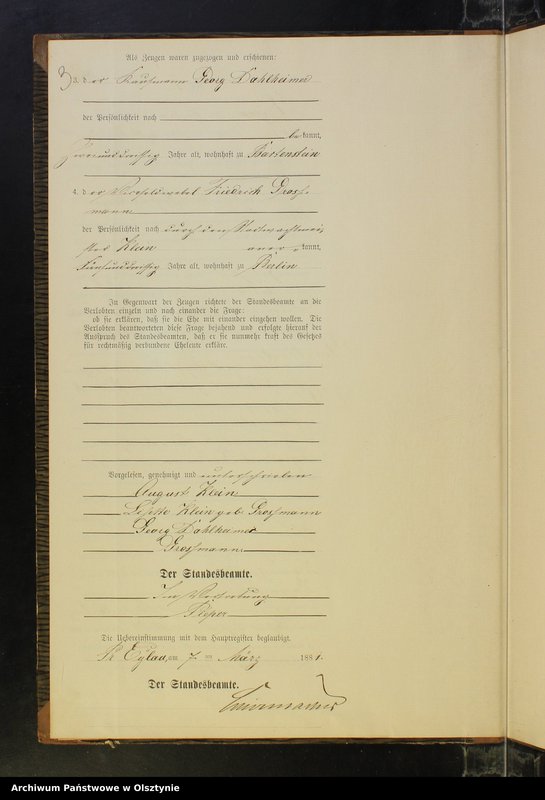 Als Zeugen waren zugezogen und erschienen:
3. der Kaufmann Georg Dahlheimer
der Persönlichkeit nach
bekannt,
zweiunddreissig Jahre alt, wohnhaft zu Bartenstein
4. der Vicefeldwebel Friedrich Gross-
mann
der Persönlichkeit nach durch den
Klein anerkannt,
fünfunddreissig Jahre alt, wohnhaft zu Berlin
In Gegenwart der Zeugen richtete der Standesbeamte an die
Verlobten einzeln und nach einander die Frage:
ob sie erklären, daß sie die Ehe mit einander eingehen wollen. Die
Verlobten beantworteten diese Frage bejahend und erfolgte hierauf der
Ausspruch des Standesbeamten, daß er sie nunmehr kraft des Gesetzes
für rechtmäßig verbundene Eheleute erkläre.
Vorgelesen, genehmigt und unterschrieben
August Klein
Klein geb. Grossmann
Georg Dahlheimer
Grossmann
Der Standesbeamte.
In Vertretung
Pieper
Die Uebereinstimmung mit dem Hauptregister beglaubigt.
Pr Eylau, am 7. ten März 1881.
Der Standesbeamte.
Archiwum Państwowe w Olsztynie